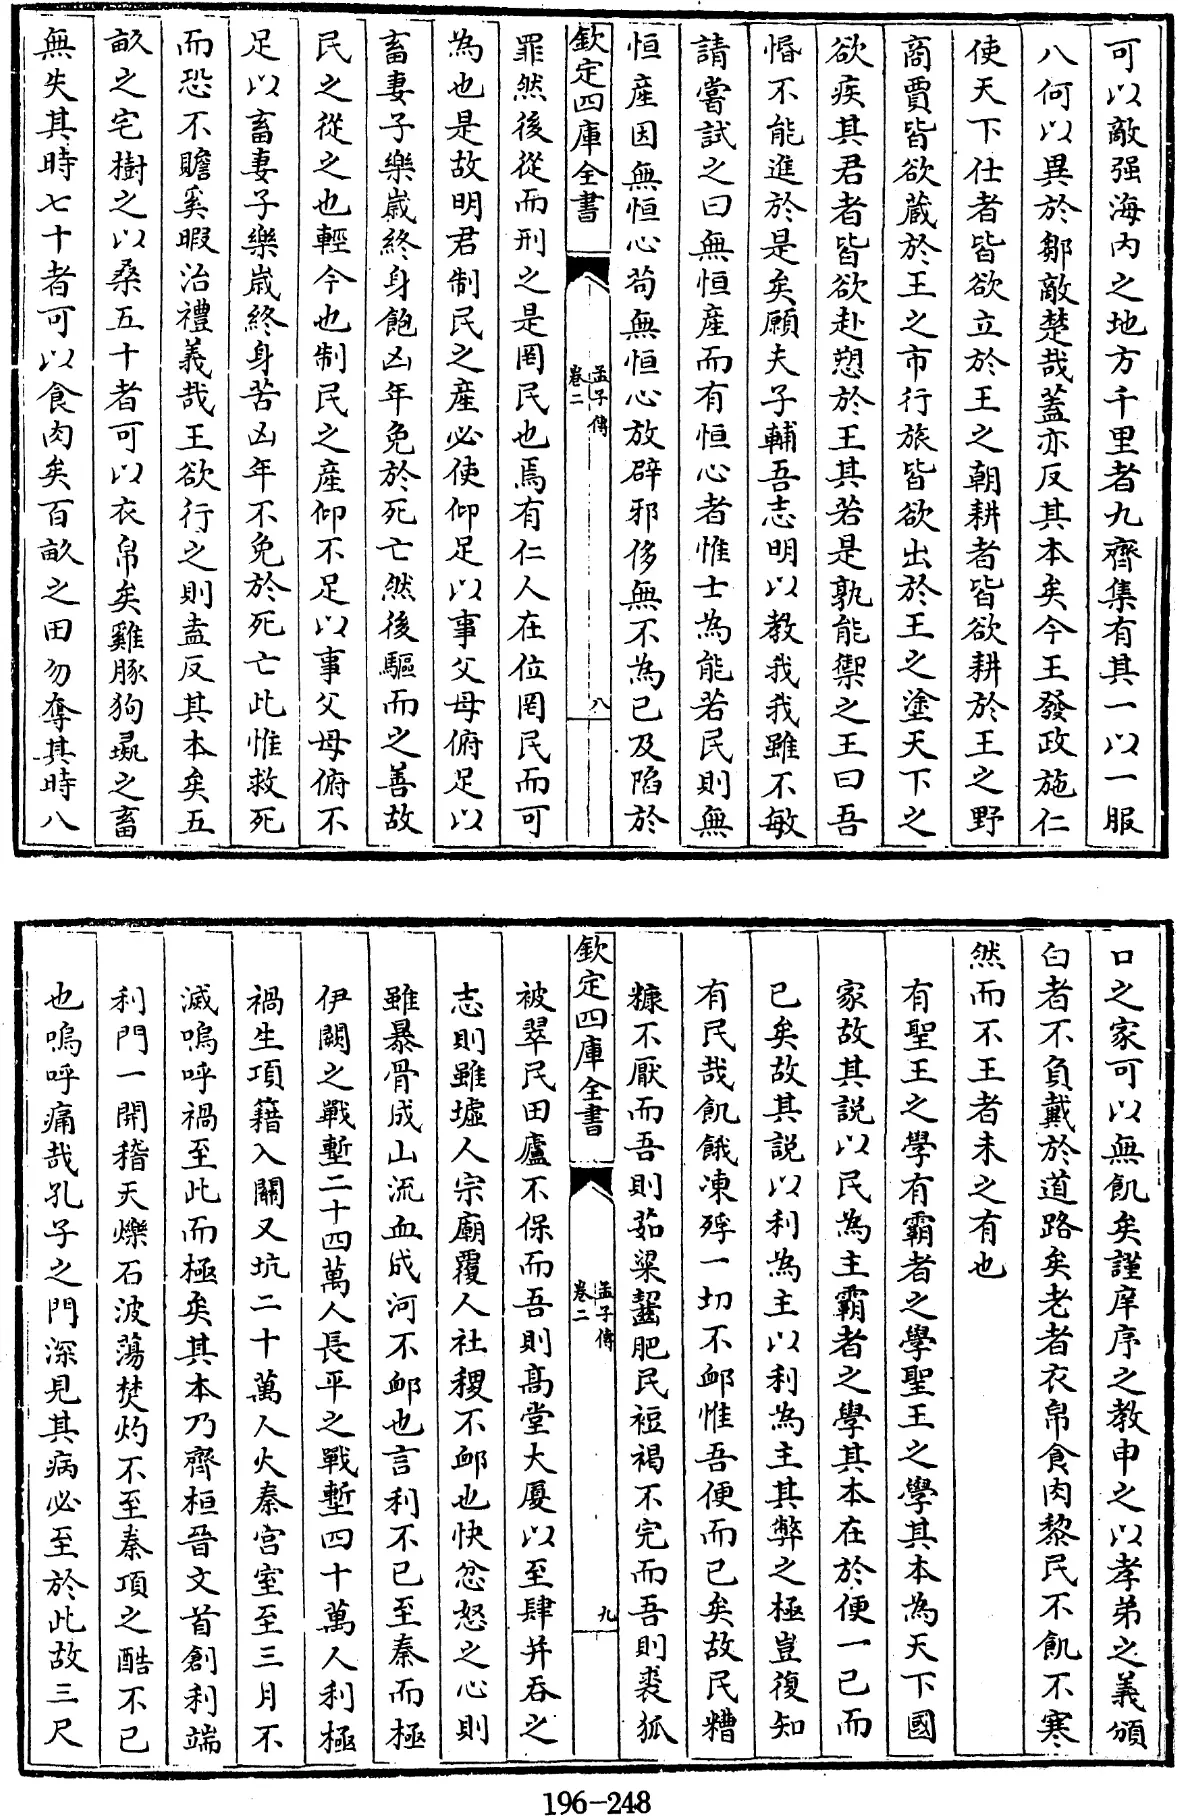 可以敵强海内之地方千里者九齊集有其一以一服
八何以異於鄒敵楚哉蓋亦反其本矣今王發政施仁
使天下仕者皆欲立於王之朝耕者皆欲耕於王之野
商賈皆欲藏於王之市行旅皆欲出於王之塗天下之
欲疾其君者皆欲赴愬於王其若是孰能禦之王曰吾
惛不能進於是矣願夫子輔吾志明以教我我雖不敏
請嘗試之曰無恒産而有恒心者惟士為能若民則無
恒産因無恒心苟無恒心放辟邪侈無不為已及陷於
欽定四庫全書
孟子傳
卷二
八
罪然後從而刑之是罔民也焉有仁人在位罔民而可
為也是故明君制民之産必使仰足以事父母俯足以
畜妻子樂嵗終身飽凶年免於死亡然後驅而之善故
民之從之也輕今也制民之産仰不足以事父母俯不
足以畜妻子樂嵗終身苦凶年不免於死亡此惟救死
而恐不贍奚暇治禮義哉王欲行之則盍反其本矣五
畝之宅樹之以桑五十者可以衣帛矣雞豚狗彘之畜
無失其時七十者可以食肉矣百畝之田勿奪其時八
口之家可以無飢矣謹庠序之教申之以孝弟之義頒
白者不負戴於道路矣老者衣帛食肉黎民不飢不寒
然而不王者未之有也
有聖王之學有霸者之學聖王之學其本為天下國
家故其説以民為主霸者之學其本在於便一已而
已矣故其説以利為主以利為主其弊之極豈復知
有民哉飢餓凍殍一切不䘏惟吾便而已矣故民糟
糠不厭而吾則茹粱齧肥民裋褐不完而吾則裘狐
欽定四庫全書
孟子傳
卷二
九
被翠民田廬不保而吾則髙堂大廈以至肆并吞之
志則雖墟人宗廟覆人社稷不䘏也快忿怒之心則
雖暴骨成山流血成河不䘏也言利不已至秦而極
伊闕之戰塹二十四萬人長平之戰塹四十萬人利極
禍生項籍入關又坑二十萬人火秦宫室至三月不
滅嗚呼禍至此而極矣其本乃齊桓晉文首創利端
利門一開稽天爍石波蕩焚灼不至秦項之酷不已
也嗚呼痛哉孔子之門深見其病必至於此故三尺
196-248